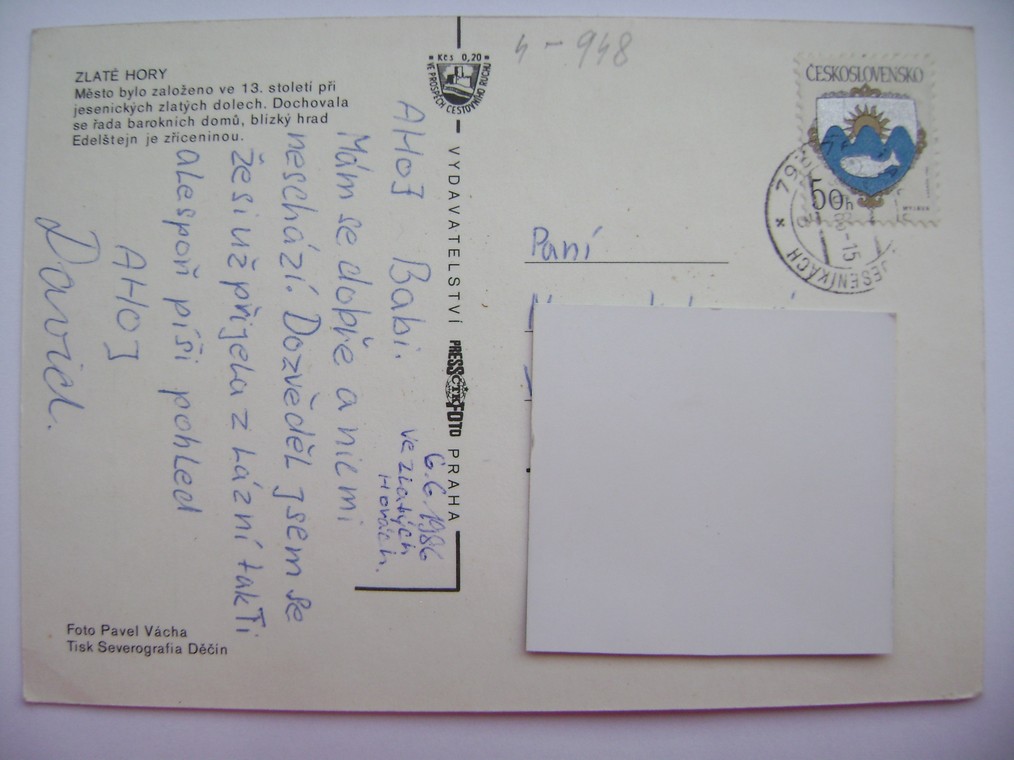 ZLATÉ HORY
Město bylo založeno ve 13. století při
jesenických zlatých dolech. Dochovala
se řada barokních domů, blízký hrad
Edelštejn je zříceninou.
Kčs 0,20
VE PROSPĚCH CESTOVNÍHO RUCHU
4-948
ČESKOSLOVENSKO
50h
JESENÍKÁCH
-15
VYDAVATELSTVÍ PRESSFOTO PRAHA
ČTK
6.6.1986
ve zlatých
Horách.
AHOJ Babi.
Mám se dobře a nic mi
neschází. Dozvěděl jsem se
že si už přijela z Lázní tak Ti
alespoň píši pohled
AHOJ
David.
Paní
Foto Pavel Vácha
Tisk Severografia Děčín